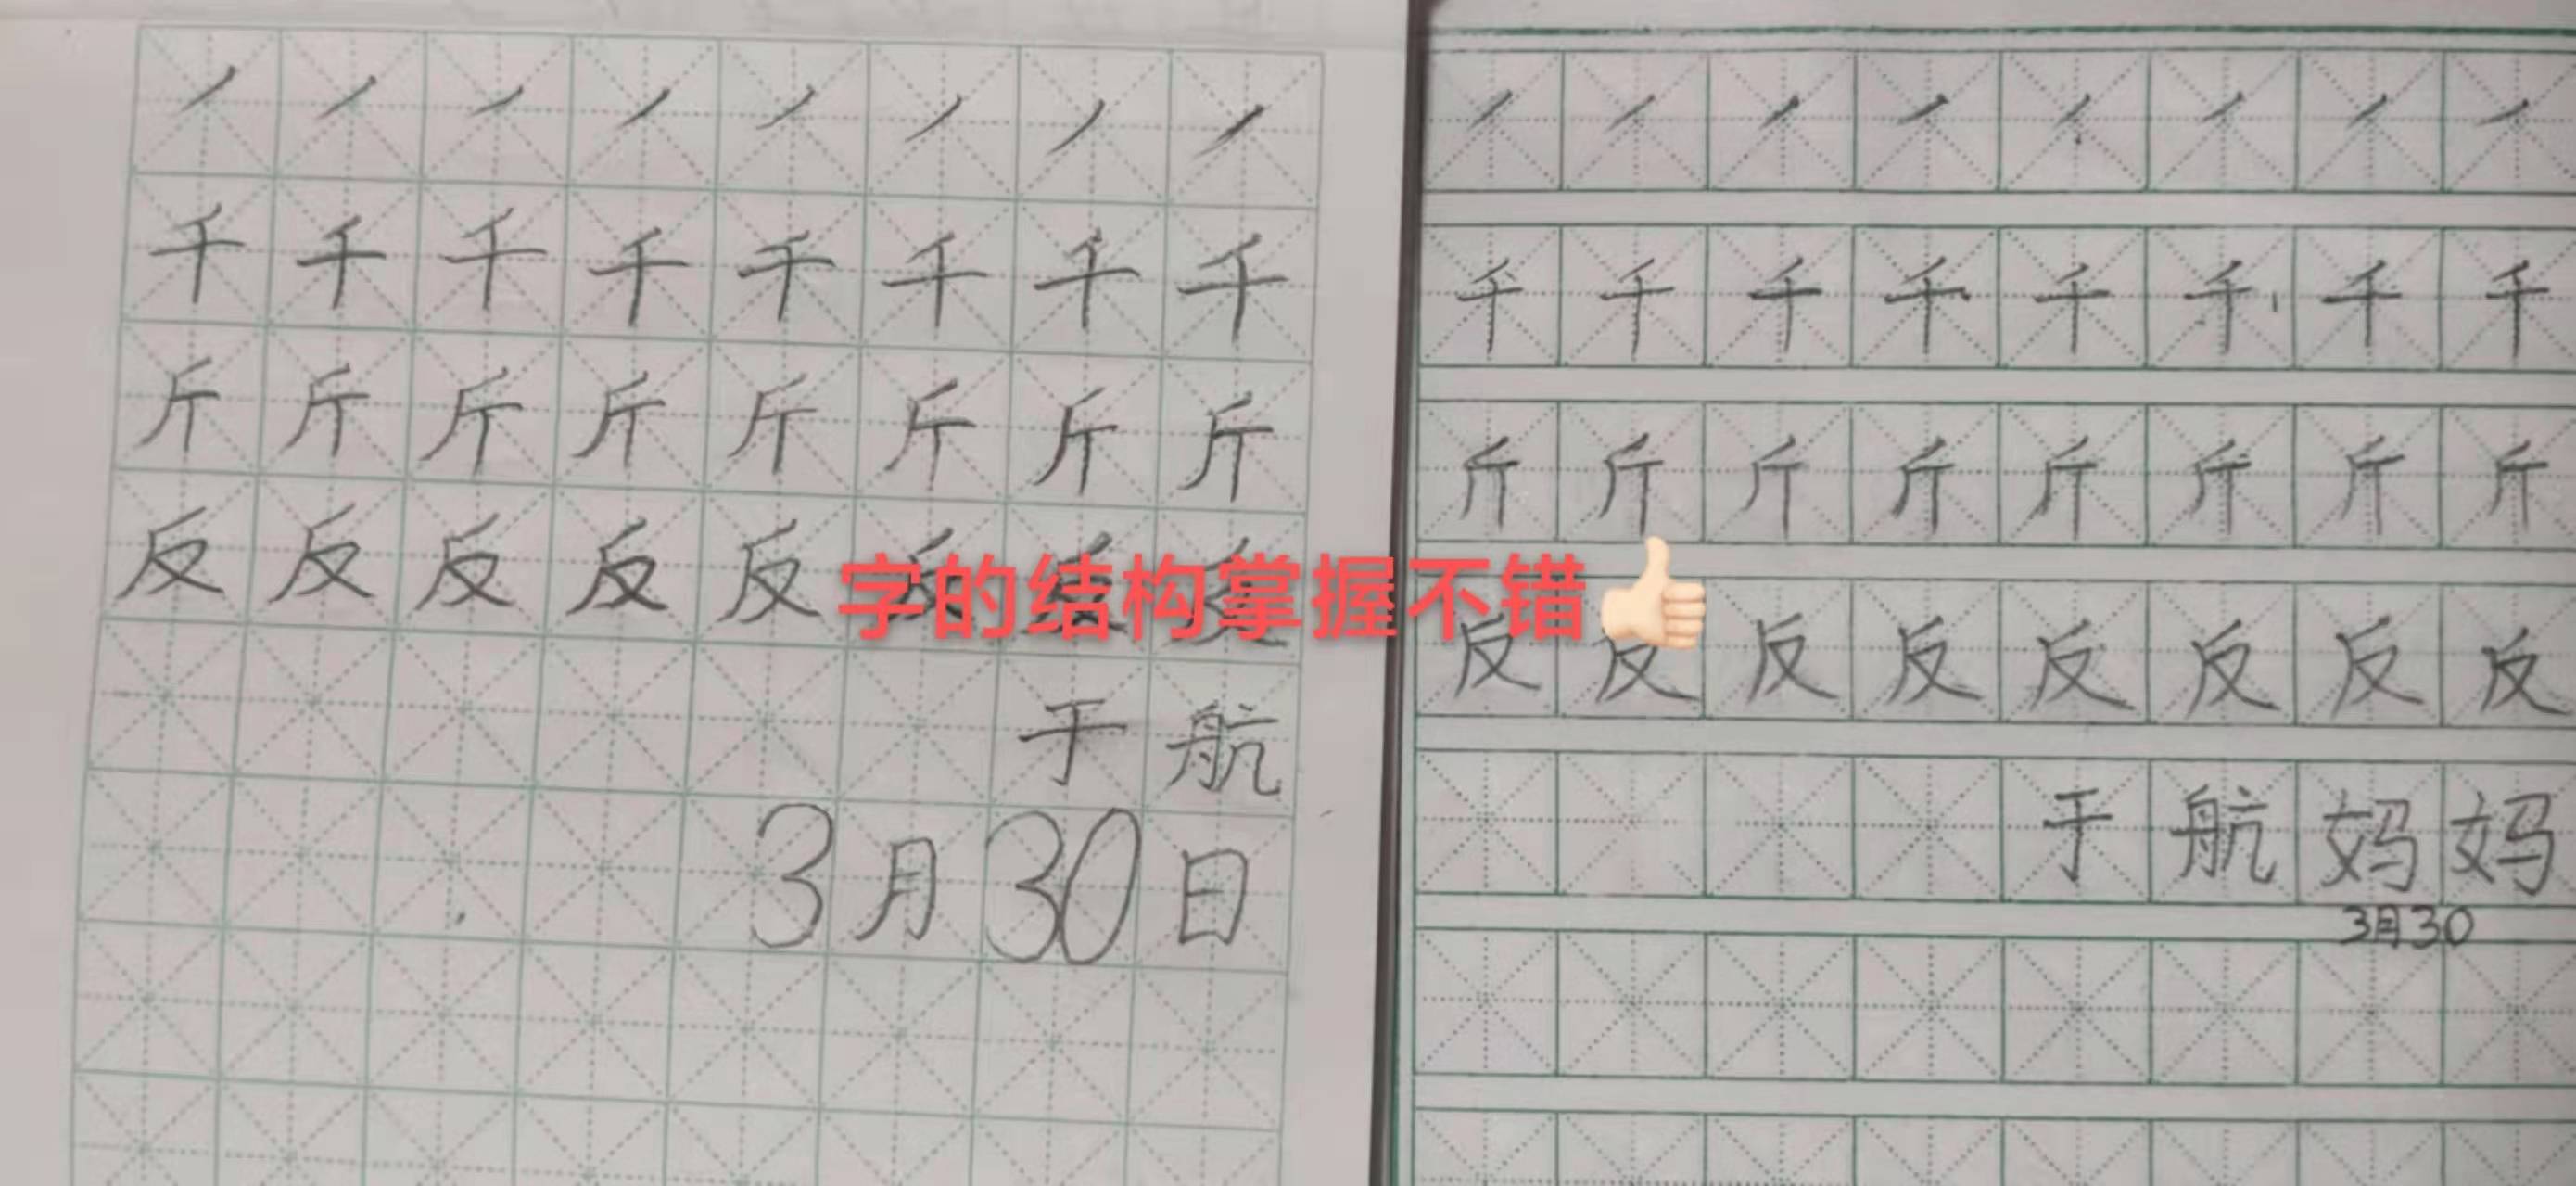 丿丿丿丿丿丿丿丿
千千千千千千千千
斤斤斤斤斤斤斤斤
反反反反反反反反
于航
3月30日
丿丿丿丿丿丿丿丿
千千千千千千千千
斤斤斤斤斤斤斤斤
反反反反反反反反
于航妈妈
3月30
字的结构掌握不错👍🏻